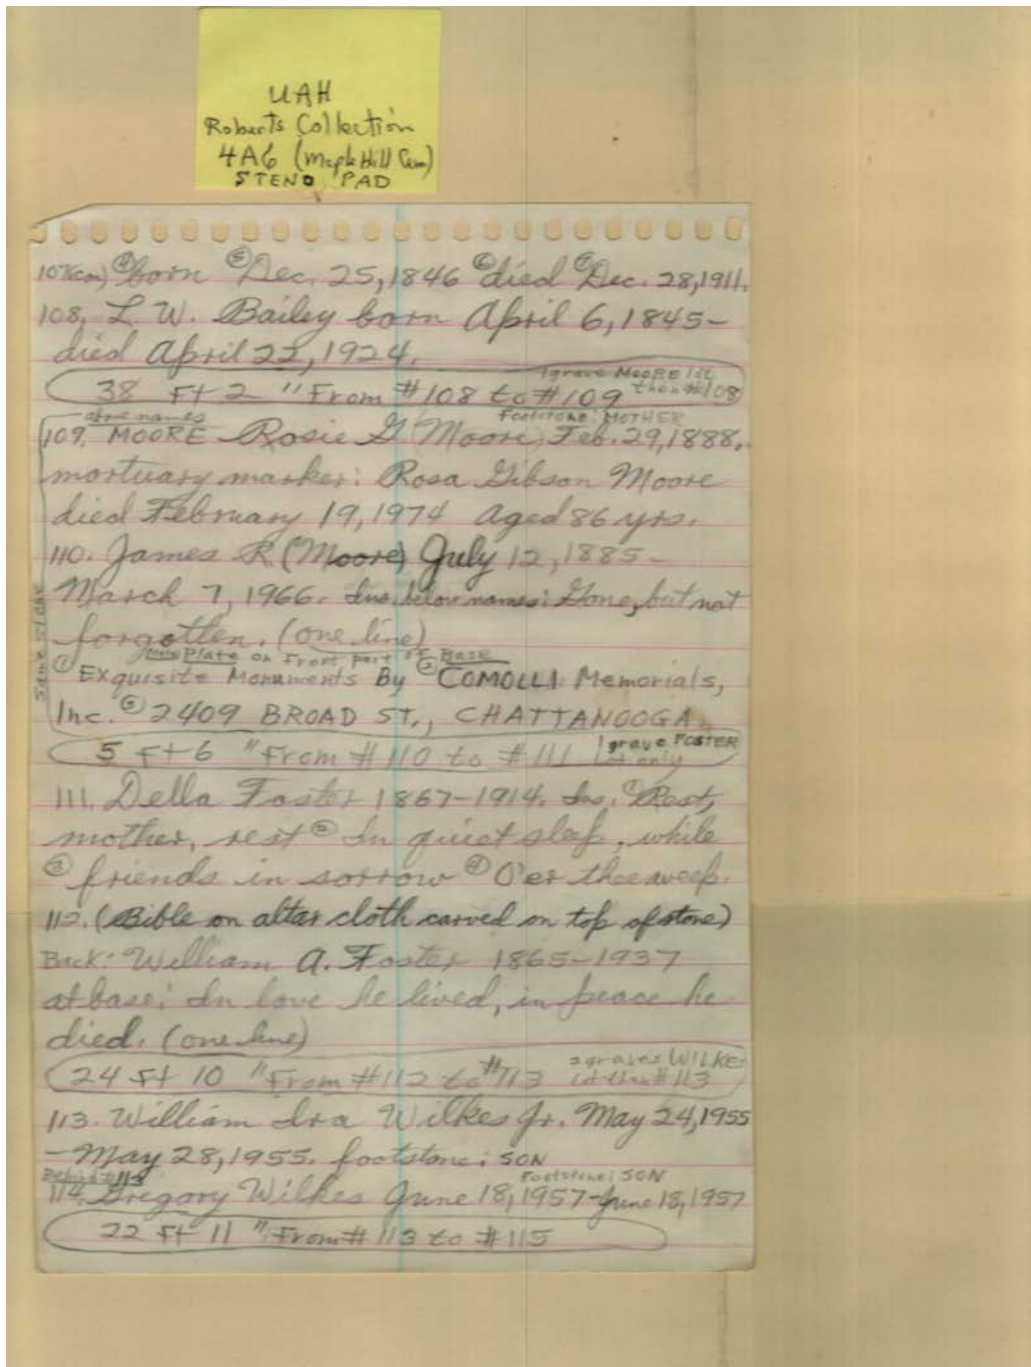 UAH
Roberts Collection
4A6 (Maple Hill Cem)
STENO PAD
107(con) ④born ⑤Dec. 25, 1846 ⑥died ⑦Dec. 28, 1911.
108. L. W. Bailey born April 6, 1845-
died April 22, 1924.
1 grave MOORE lot
38 Ft 2 " From #108 to #109 than #108
above names footstone: MOTHER
109. MOORE Rosie G. (Moore) Feb. 29, 1888.
mortuary marker: Rosa Gibson Moore
died February 19, 1974 Aged 86 yrs.
110. James R. (Moore) July 12, 1885-
March 7, 1966. Ins. below names: Gone, but not
forgotten. (one line)
Same stone
Plate on Front part of Base
① Exquisite Monuments By ② COMOLLI Memorials,
Inc. ③ 2409 BROAD ST., CHATTANOOGA
5 Ft 6 " From #110 to #111 1 grave FOSTER
lot only
111. Della Foster 1867-1914. Ins. ①Rest,
mother, rest ② In quiet sleep, while
③ friends in sorrow ④ O'er thee weep.
112. (Bible on altar cloth carved on top of stone)
Back: William A. Foster 1865-1937
at base: In love he lived, in peace he
died. (one line)
2 graves WILKES
24 Ft 10 " From #112 to #113 lot than #113
113. William Ira Wilkes Jr. May 24, 1955
- May 28, 1955. footstone: SON
Behind 113 Footstone: SON
114. Gregory Wilkes June 18, 1957-June 18, 1957
22 Ft 11 " From #113 to #115